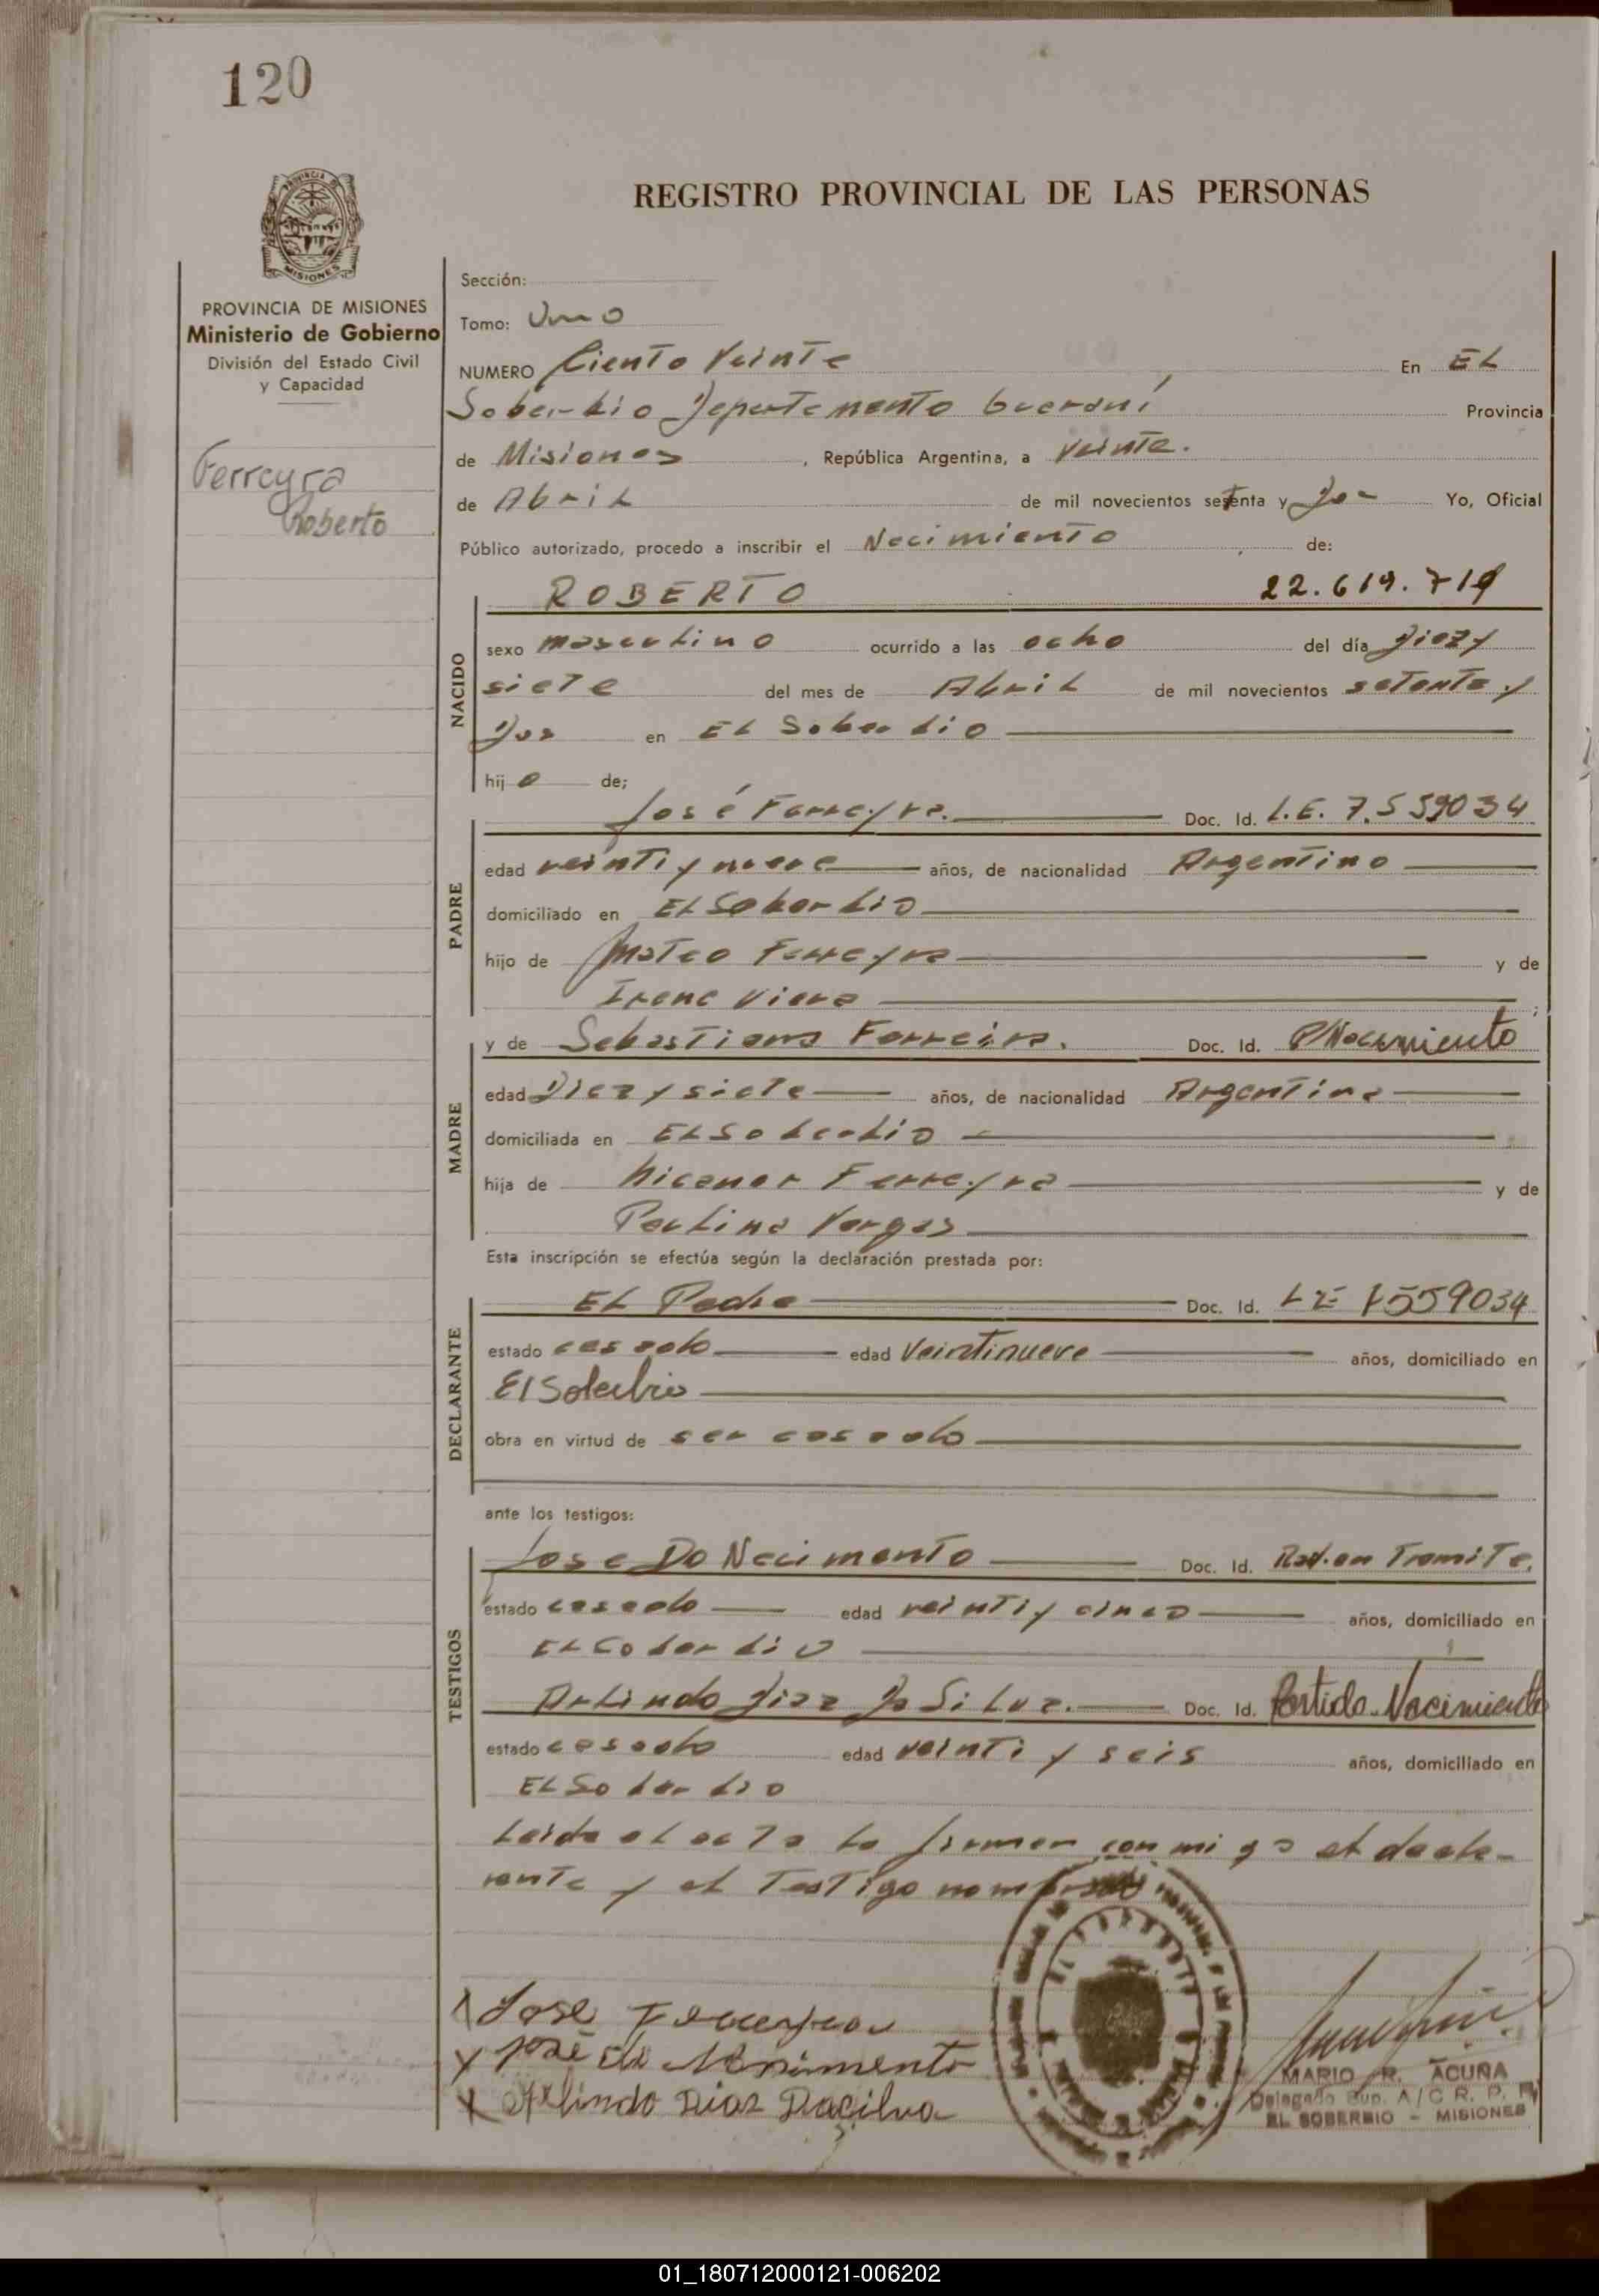 120
REGISTRO PROVINCIAL DE LAS PERSONAS
PROVINCIA DE
MISIONES
PROVINCIA DE MISIONES
Ministerio de Gobierno
División del Estado Civil
y Capacidad
Ferreyra
Roberto
Sección:
Tomo: Uno
NUMERO Ciento Veinte En EL
Soberbio Departamento Guaraní Provincia
de Misiones, República Argentina, a Veinte.
de Abril de mil novecientos setenta y Dos Yo, Oficial
Público autorizado, procedo a inscribir el Nacimiento de:
ROBERTO 22.619.719
NACIDO
sexo masculino ocurrido a las ocho del día Diez y
siete del mes de Abril de mil novecientos setenta y
Dos en EL Soberbio
hijo de;
José Ferreyra. Doc. Id. L.E. 7.559034
PADRE
edad veinti y nueve años, de nacionalidad Argentino
domiciliado en EL Soberbio
hijo de Mateo Ferreyra y de
Irene Viera
y de Sebastiana Ferreira. Doc. Id. P Nacimiento
MADRE
edad Diez y siete años, de nacionalidad Argentina
domiciliada en EL Soberbio
hija de Nicanor Ferreyra y de
Paulina Vargas
Esta inscripción se efectúa según la declaración prestada por:
EL Padre Doc. Id. LE 7559034
DECLARANTE
estado casado edad Veintinueve años, domiciliado en
El Soberbio
obra en virtud de ser casado
ante los testigos:
Jose Do Nacimento Doc. Id. Rad. en Tramite.
TESTIGOS
estado casado edad veinti y cinco años, domiciliado en
EL Soberbio
Arlindo Diaz Da Silva. Doc. Id. Partida Nacimiento
estado casado edad veinti y seis años, domiciliado en
EL Soberbio
Leida el acta la firman conmigo el decla-
rante y el Testigo nombrado
x Jose Ferreyra
x José do Nasimento
x Arlindo Diaz Dacilva
MARIO R. ACUÑA
Delegado Sup. A/C R. P. P.
EL SOBERBIO - MISIONES
01_180712000121-006202